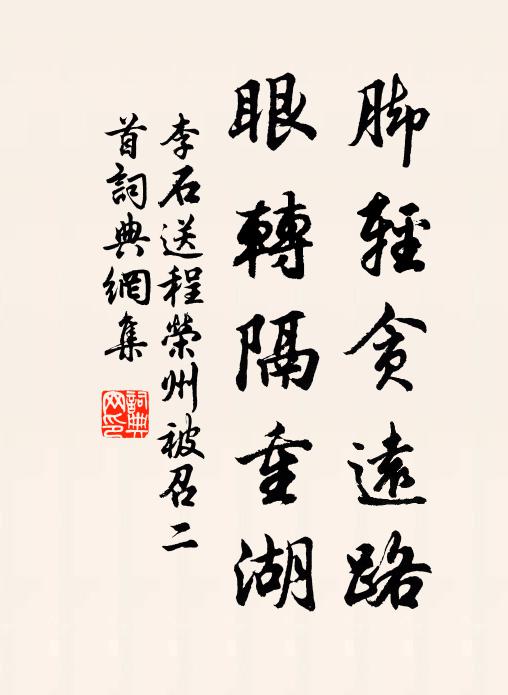 脚輕貪遠路
眼轉隔重湖
李石送程榮州被召二
首詞典網集
詞典
网印